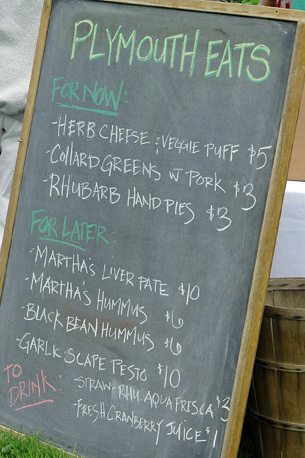 PLYMOUTH EATS
FOR NOW:
-HERB CHEESE : VEGGIE PUFF $5
-COLLARD GREENS W PORK $3
-RHUBARB HAND PIES $3
FOR LATER:
-MARTHA'S LIVER PATE $10
-MARTHA'S HUMMUS $6
-BLACK BEAN HUMMUS $6
-GARLK SCAPE PESTO $10
TO DRINK:
-STRAW-RHU. AQUA FRISCA $3
-FRESH CRANBERRY JUICE $1